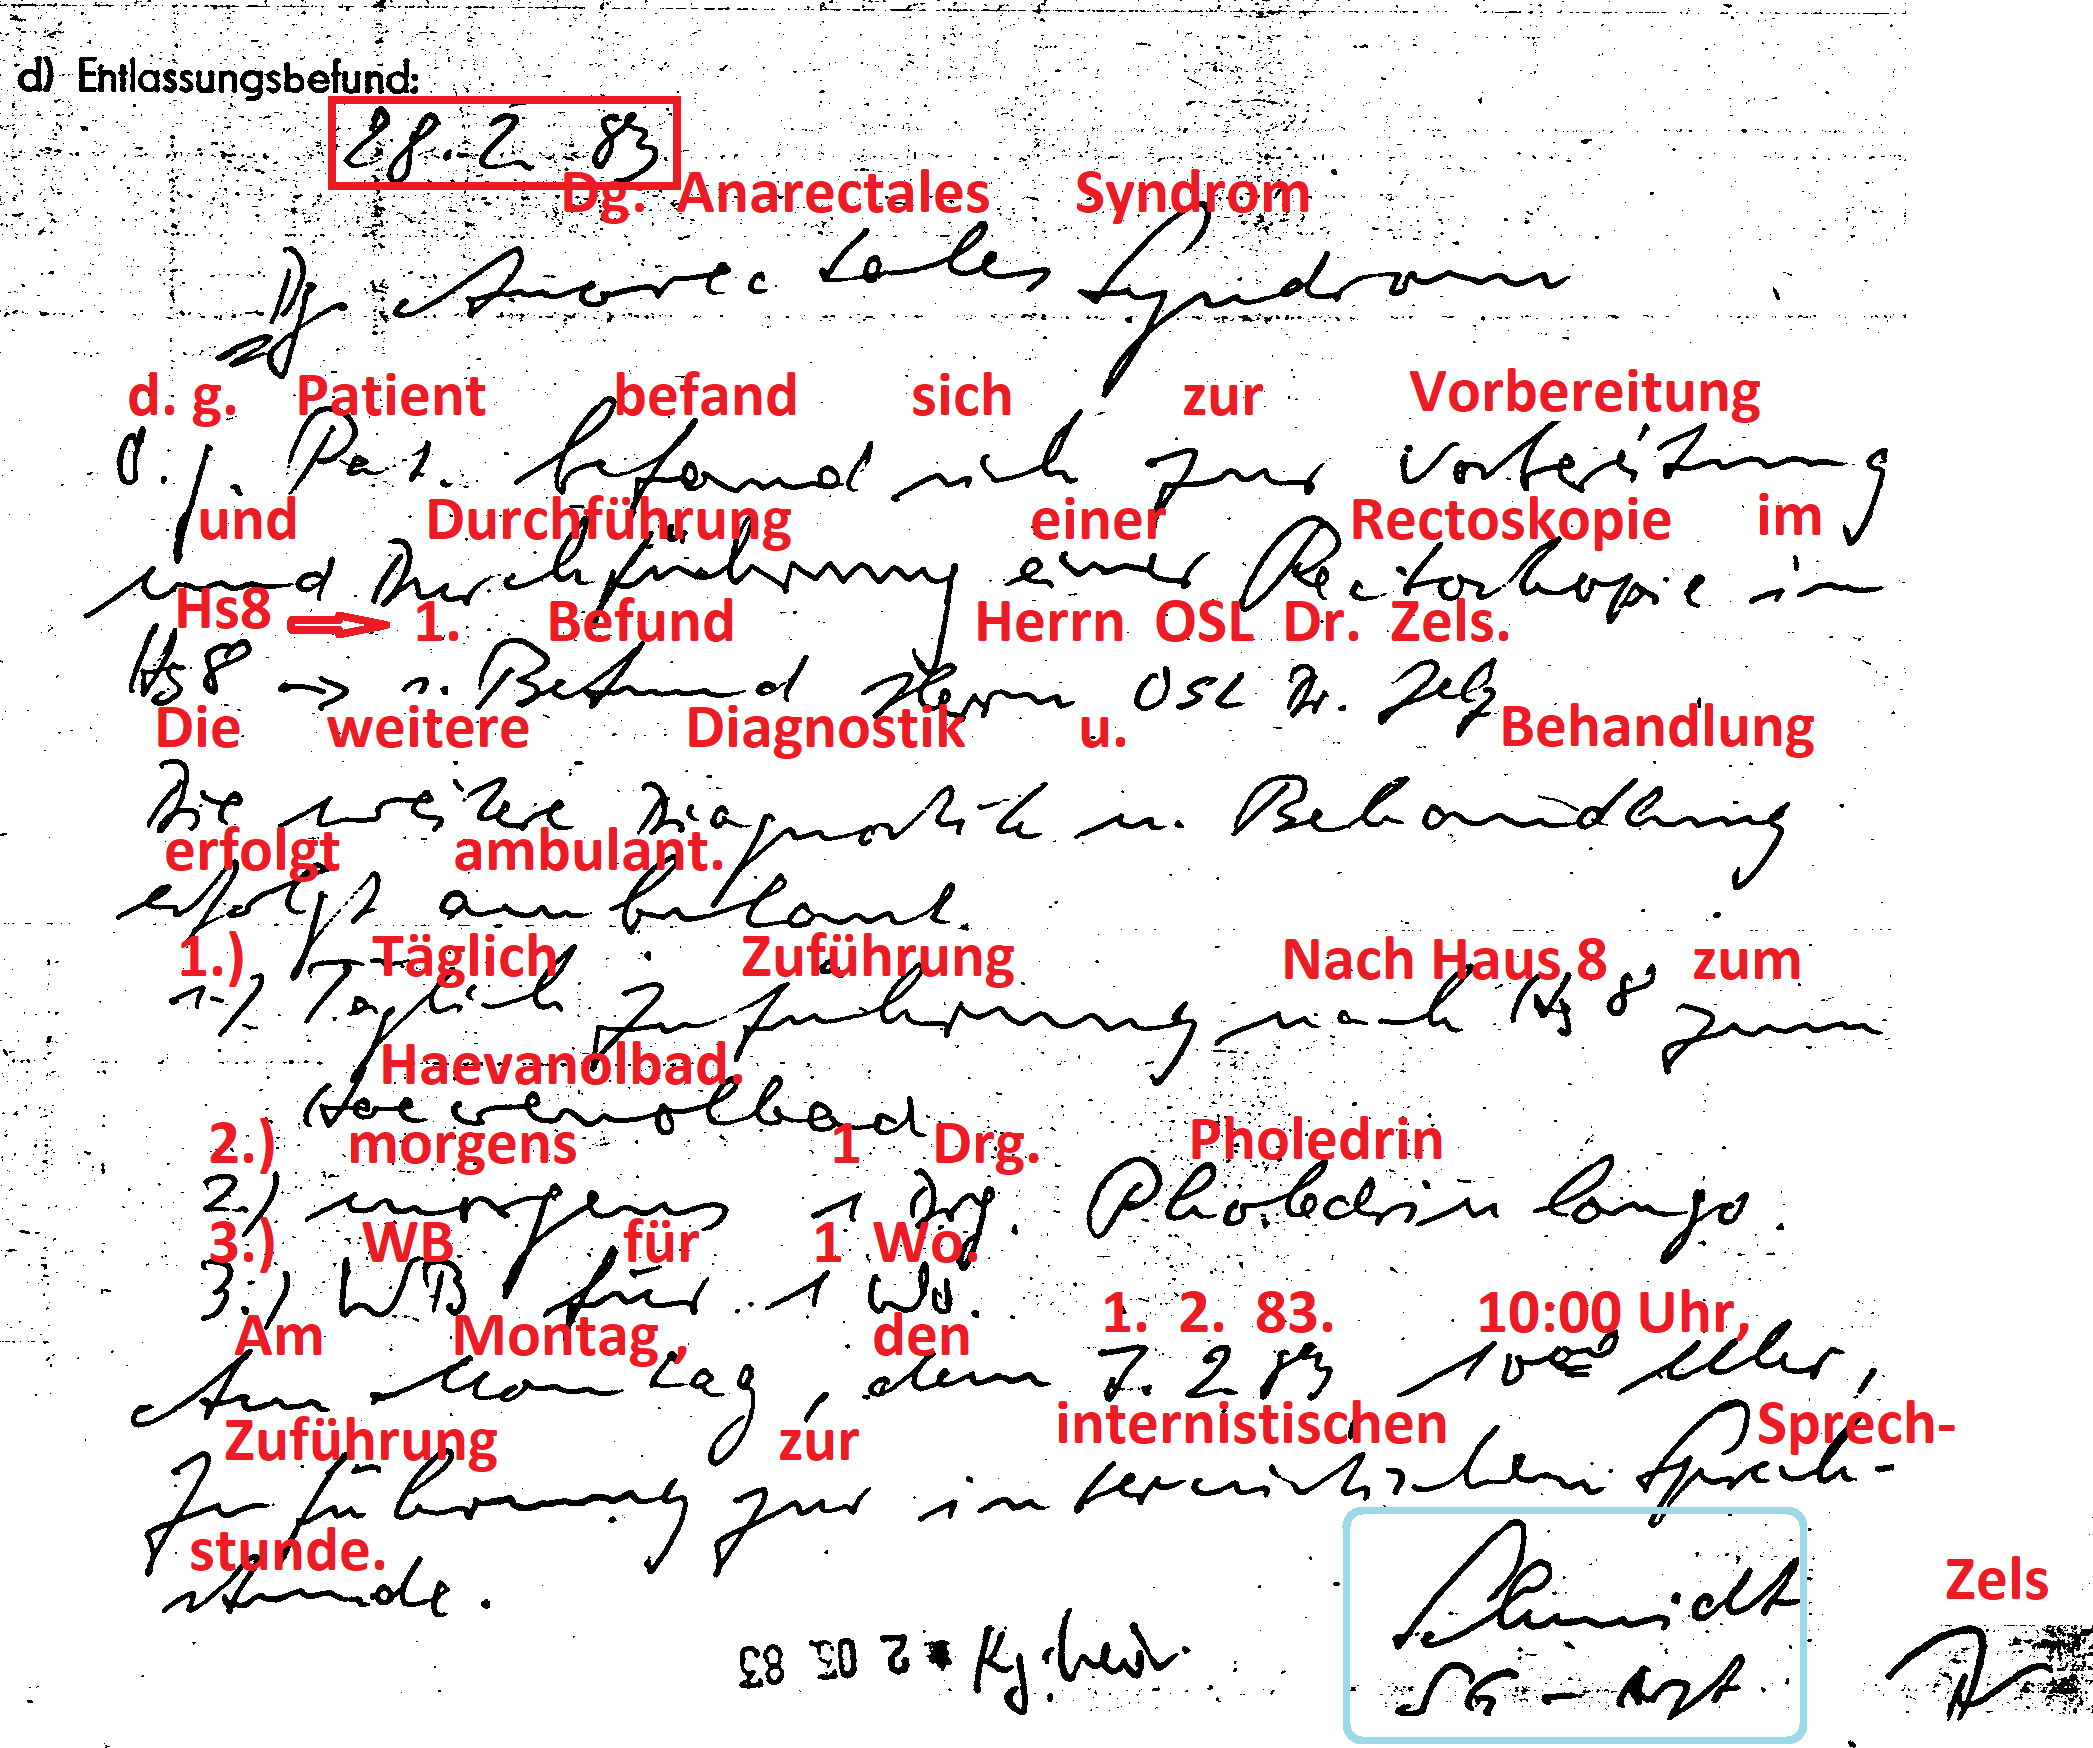 d) Entlassungsbefund:
28. 2 83
Dg. Anarectales Syndrom
Dg. Anorectales Syndrom
d. g. Patient befand sich zur Vorbereitung
Pat. befand sich zur Vorbereitung
und Durchführung einer Rectoskopie im
und Durchführung einer Rectoskopie im
Hs8 ⇒ 1. Befund Herrn OSL Dr. Zels.
Hs 8 → Befund Herrn OSL Dr. Zels
Die weitere Diagnostik u. Behandlung
Die weitere Diagnostik u. Behandlung
erfolgt ambulant.
erfolgt ambulant.
1.) Täglich Zuführung Nach Haus 8 zum
1.) Täglich Zuführung nach Hs 8 zum
Haevanolbad.
Haevenolbad
2.) morgens 1 Drg. Pholedrin
2.) morgens 1 Drg. Pholedrin longo.
3.) WB für 1 Wo.
3.) WB für 1 Wo.
Am Montag, den 1. 2. 83. 10:00 Uhr,
Am Montag, dem 7. 2 83 10⁰⁰ Uhr,
Zuführung zur internistischen Sprech-
Zuführung zur internistischen Sprech-
stunde.
stunde.
Schmidt
SG-Arzt
Zels
2 03 83